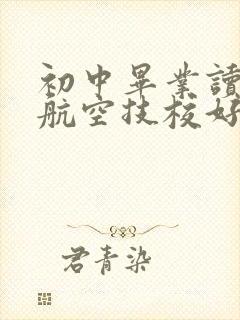 初中畢業讀
航空技校好
君青染